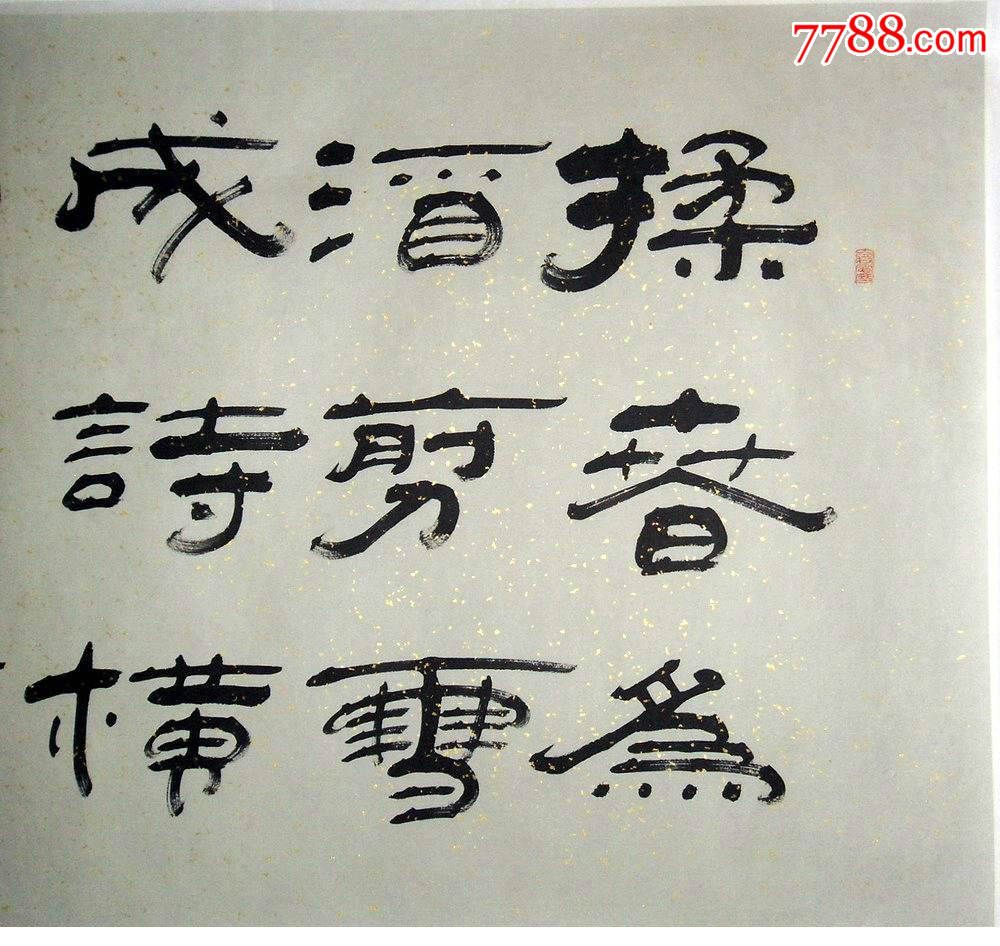 7788.com
揉春為
酒剪雪
成詩橫